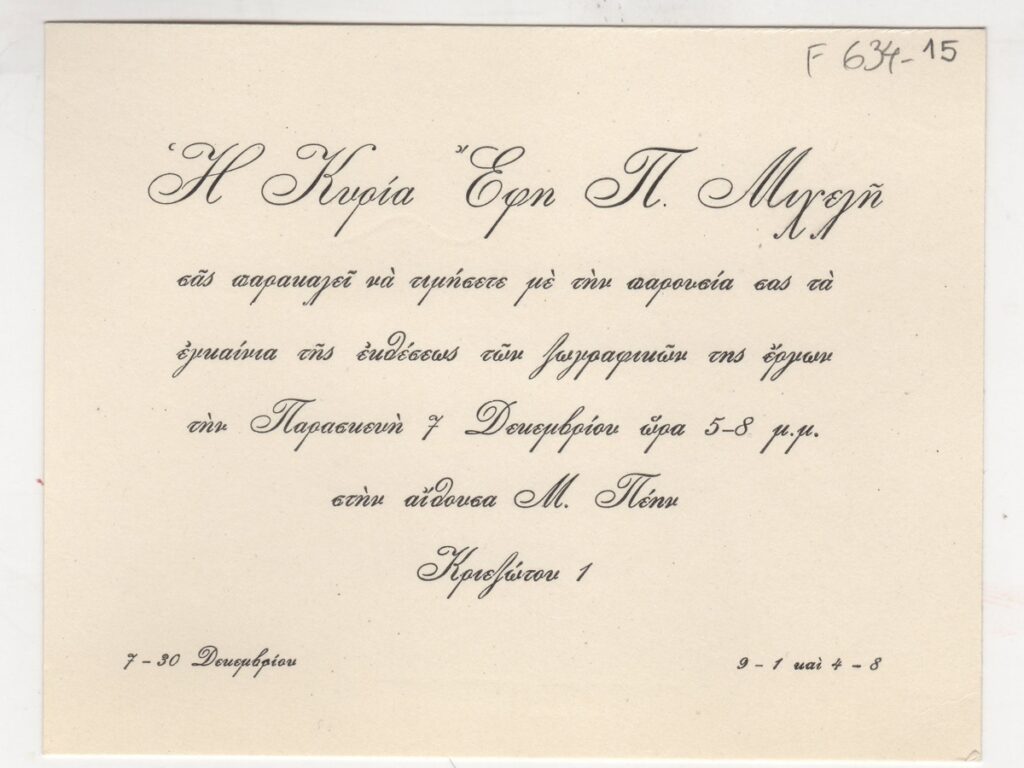 F 634-15
Ἡ Κυρία Ἔφη Π. Μιχελῆ
σᾶς παρακαλεῖ νὰ τιμήσετε μὲ τὴν παρουσία σας τὰ
ἐγκαίνια τῆς ἐκθέσεως τῶν ζωγραφικῶν της ἔργων
τὴν Παρασκευὴ 7 Δεκεμβρίου ὥρα 5-8 μ.μ.
στὴν αἴθουσα Μ. Πένυ
Κριεζώτου 1
7 - 30 Δεκεμβρίου
9 - 1 καὶ 4 - 8